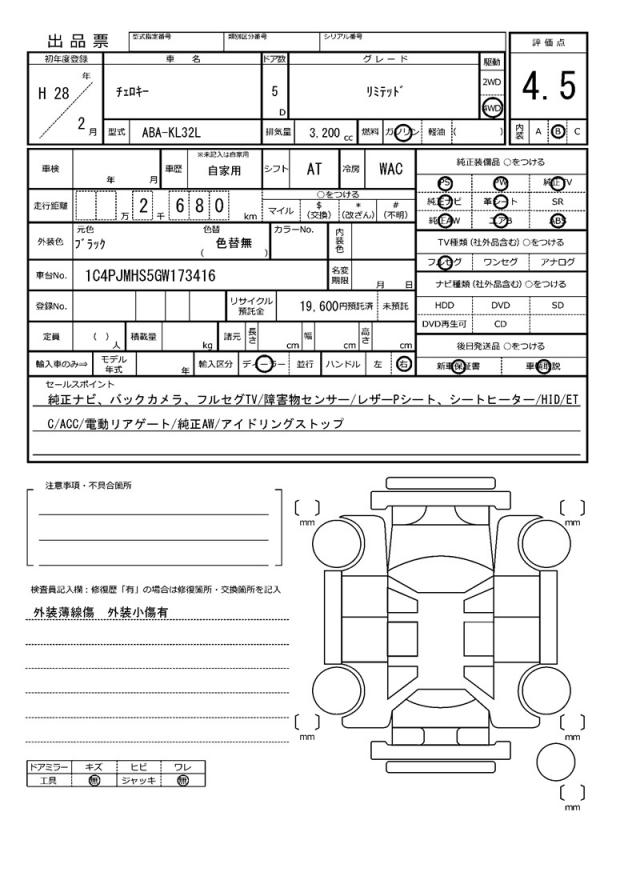 出品票 型式指定番号 類別区分番号 シリアル番号
評価点
4.5
内装 A B C
初年度登録 車名 ドア数 グレード 駆動
H 28 年 チェロキー 5 D リミテッド 2WD
2 月 4WD
型式 ABA-KL32L 排気量 3.200 cc 燃料 ガソリン 軽油 ( )
車検 年 月 車歴 ※未記入は自家用 自家用 シフト AT 冷房 WAC
走行距離 万 2 千 6 8 0 km
○をつける
マイル $(交換) *(改ざん) #(不明)
外装色 元色 ブラック 色替 色替無 ( ) カラーNo. 内装色
車台No. 1C4PJMHS5GW173416 名変期限 月 日
登録No. リサイクル預託金 19,600円預託済 未預託
定員 ( ) 人 積載量 kg 諸元 長さ cm 幅 cm 高さ cm
輸入車のみ⇒ モデル年式 年 輸入区分 ディーラー 並行 ハンドル 左 右
純正装備品 ○をつける
PS PW 純正TV
純正ナビ 革シート SR
純正AW エアB ABS
TV種類(社外品含む)○をつける
フルセグ ワンセグ アナログ
ナビ種類(社外品含む)○をつける
HDD DVD SD
DVD再生可 CD
後日発送品 ○をつける
新車保証書 車輌取説
セールスポイント
純正ナビ、バックカメラ、フルセグTV/障害物センサー/レザーPシート、シートヒーター/HID/ET
C/ACC/電動リアゲート/純正AW/アイドリングストップ
注意事項・不具合箇所
検査員記入欄：修復歴「有」の場合は修復箇所・交換箇所を記入
外装薄線傷 外装小傷有
ドアミラー キズ ヒビ ワレ
工具 無 ジャッキ 無
mm
mm
mm
mm
mm